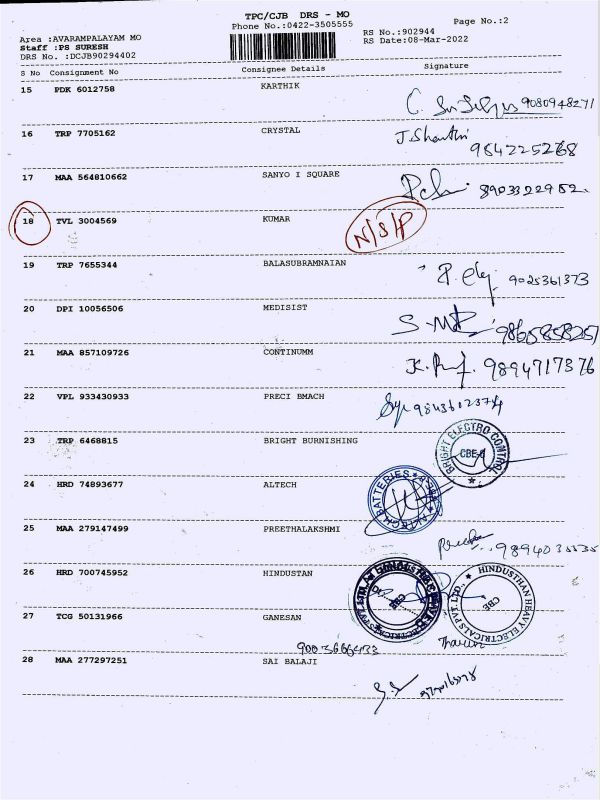 TPC/CJB DRS - MO
Page No.:2
Phone No.:0422-3505555
Area :AVARAMPALAYAM MO
RS No.:902944
Staff :PS SURESH
RS Date:08-Mar-2022
DRS No. :DCJB90294402
S No Consignment No Consignee Details Signature
15 PDK 6012758 KARTHIK
9080948271
16 TRP 7705162 CRYSTAL J.Shanthi
9842252768
17 MAA 564810662 SANYO I SQUARE
8903322952
18 TVL 3004569 KUMAR N/S/P
19 TRP 7655344 BALASUBRAMNAIAN
9025361373
20 DPI 10056506 MEDISIST
9865858257
21 MAA 857109726 CONTINUMM
9894717376
22 VPL 933430933 PRECI BMACH
9843602374
23 TRP 6468815 BRIGHT BURNISHING
BRIGHT ELECTRO CONTROL
CBE-6
24 HRD 74893677 ALTECH
BATTERIES
25 MAA 279147499 PREETHALAKSHMI
9894035535
26 HRD 700745952 HINDUSTAN
HINDUSTHAN HEAVY ELECTRICALS PVT. LTD.,
CBE
27 TCG 50131966 GANESAN
9003666433
28 MAA 277297251 SAI BALAJI